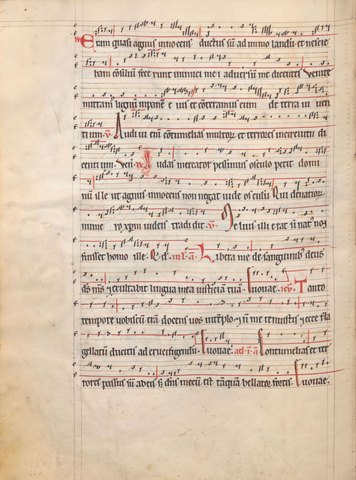 Eram quasi agnus innocens ductus sū ad īmolandū et nescie
bam cōsiliū fecerunt inimici mei adversū me dicentes venite
mittam lignū in panē eius et cōteramus eum de terra vi ven
tium. v. Audivi eni cōtumelias multorū et terrores in circuitu di
centium. Veni. R. Iudas mercator pessimus osculo petit domi
nū ille ut agnus innocens non negat iude osculū R denariorū
numero xpm iudeis tradidit. v. Melius illi erat si natus nōn
fuisset homo ille. R. d. in l. a. Libera me de sanguinibs deus
ds ms et exultabit lingua mea iusticiam tuā. Euouae. Tanto
tempore vobiscū erā docens vos in tēplo et nō me tenuistis et ecce fla
gellatū ducitis ad crucifigendū. Euouae. ad v. a. Contumelias et ter
rores passus sū ab eis et dns mecū est tāquā bellator fortis. Euouae.